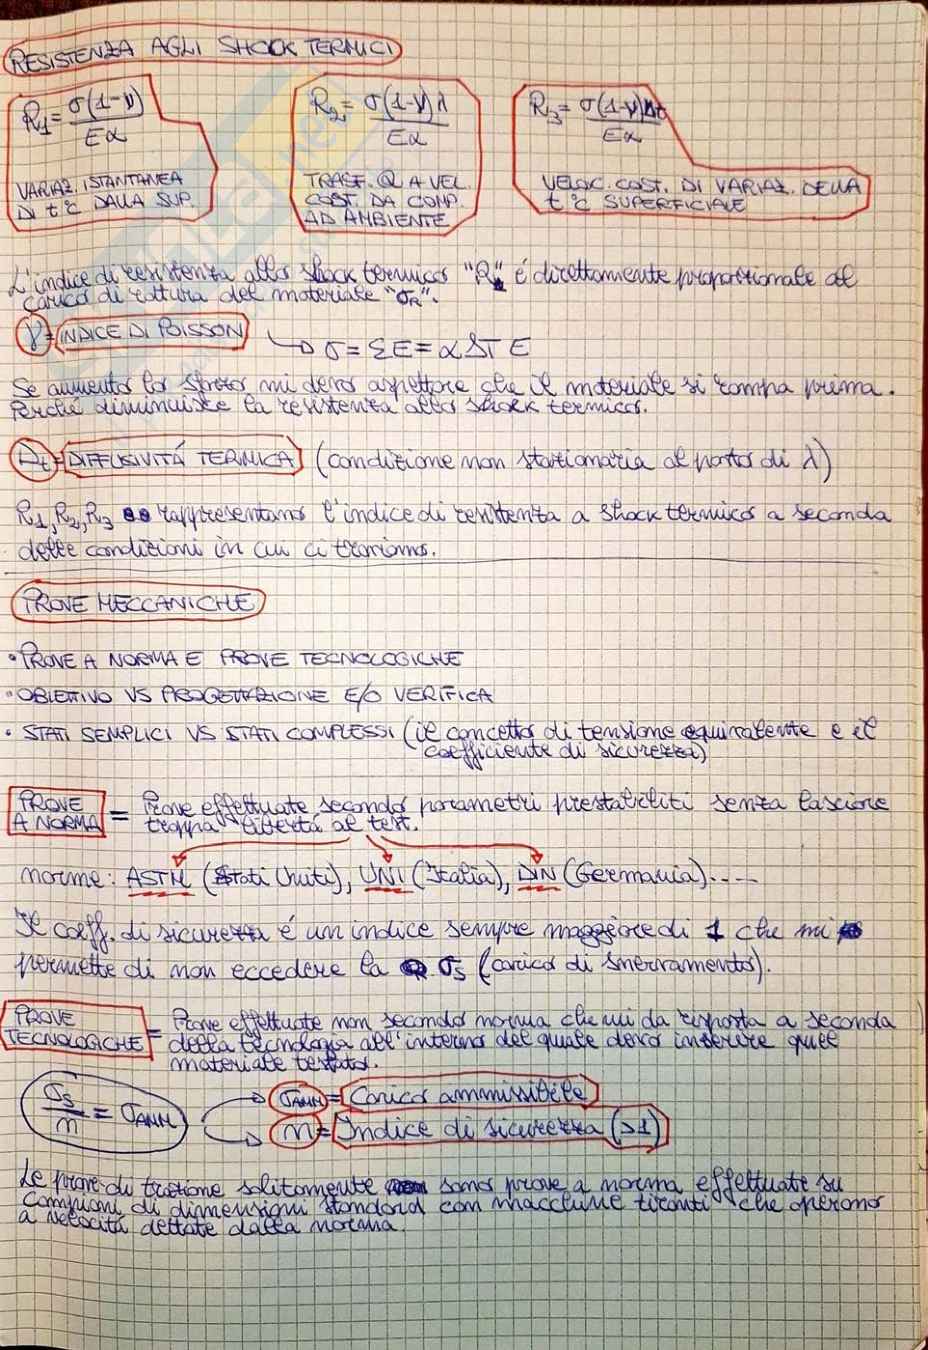 RESISTENZA AGLI SHOCK TERMICI
R1 = σ(1-ν) / Eα
R2 = σ(1-ν)λ / Eα
R3 = σ(1-ν)Dt / Eα
VARIAZ. ISTANTANEA
DI t°C DALLA SUP.
TRASF. Q A VEL.
COST. DA COMP.
AD AMBIENTE
VELOC. COST. DI VARIAZ. DELLA
t°C SUPERFICIALE
L'indice di resistenza allo shock termico "R" é direttamente proporzionale al
carico di rottura del materiale "σR".
γ = INDICE DI POISSON → σ = ΣE = αΔT E
Se aumento lo sforzo mi devo aspettare che il materiale si rompa prima.
Perché diminuisce la resistenza allo shock termico.
Dt = DIFFUSIVITÁ TERMICA (condizione non stazionaria al posto di λ)
R1, R2, R3 rappresentano l'indice di resistenza a shock termico a seconda
delle condizioni in cui ci troviamo.
PROVE MECCANICHE
• PROVE A NORMA E PROVE TECNOLOGICHE
• OBIETTIVO VS PROGETTAZIONE E/O VERIFICA
• STATI SEMPLICI VS STATI COMPLESSI (il concetto di tensione equivalente e il
coefficiente di sicurezza)
PROVE A NORMA = Prove effettuate secondo parametri prestabiliti senza lasciare
troppa libertá al test.
norme: ASTM (Stati Uniti), UNI (Italia), DIN (Germania)....
Il coeff. di sicurezza é un indice sempre maggiore di 1 che mi
permette di non eccedere la σs (carico di snervamento).
PROVE TECNOLOGICHE = Prove effettuate non secondo norma che mi da risposta a seconda
della tecnologia all'interno del quale devo inserire quel
materiale testato.
σs / n = σAMM
σAMM = Carico ammissibile
n = Indice di sicurezza (>1)
Le prove di trazione solitamente sono prove a norma effettuate su
campioni di dimensioni standard con macchine tiranti che operano
a velocitá dettate dalla norma.